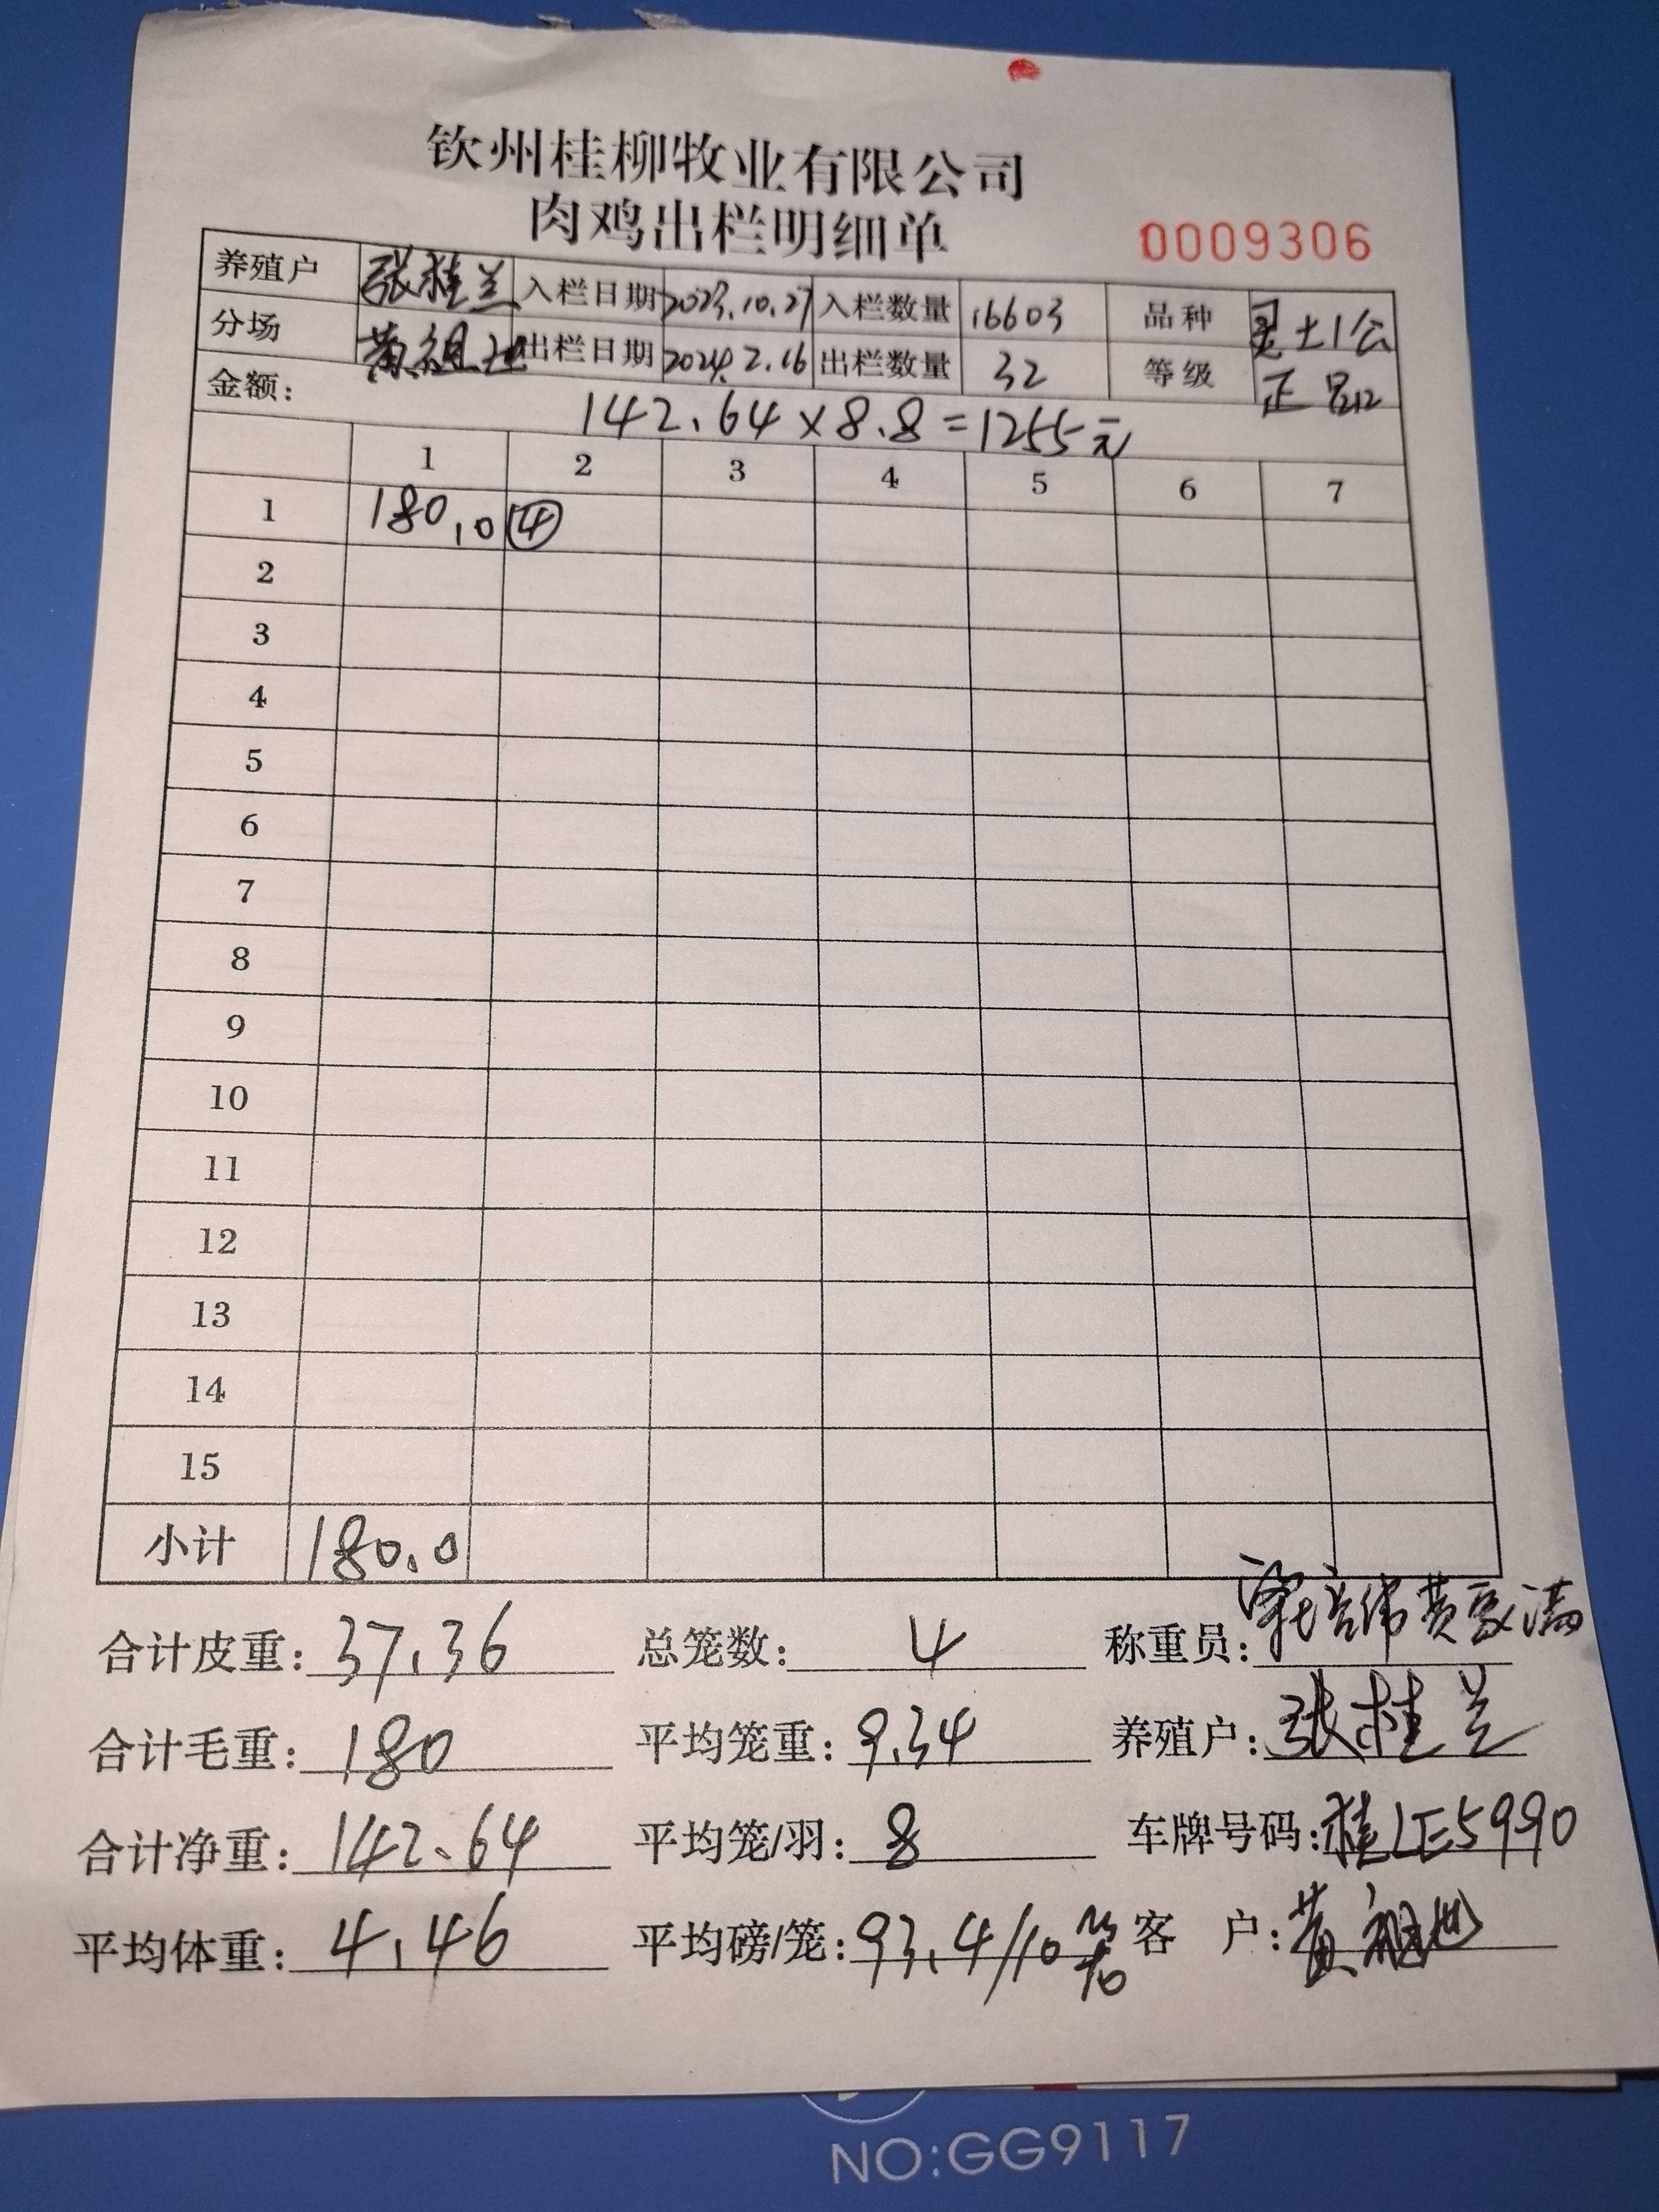 钦州桂柳牧业有限公司
肉鸡出栏明细单
0009306
养殖户 张桂兰 入栏日期 2023.10.27 入栏数量 16603 品种 灵土1公
分场 出栏日期 2024.2.16 出栏数量 32 等级 正品
金额: 142.64×8.8=1255元
1 2 3 4 5 6 7
1 180.0 ④
2
3
4
5
6
7
8
9
10
11
12
13
14
15
小计 180.0
合计皮重: 37.36 总笼数: 4 称重员:
合计毛重: 180 平均笼重: 9.34 养殖户: 张桂兰
合计净重: 142.64 平均笼/羽: 8 车牌号码: 桂LE5990
平均体重: 4.46 平均磅/笼: 93.4/10笼 客 户: 黄
NO:GG9117